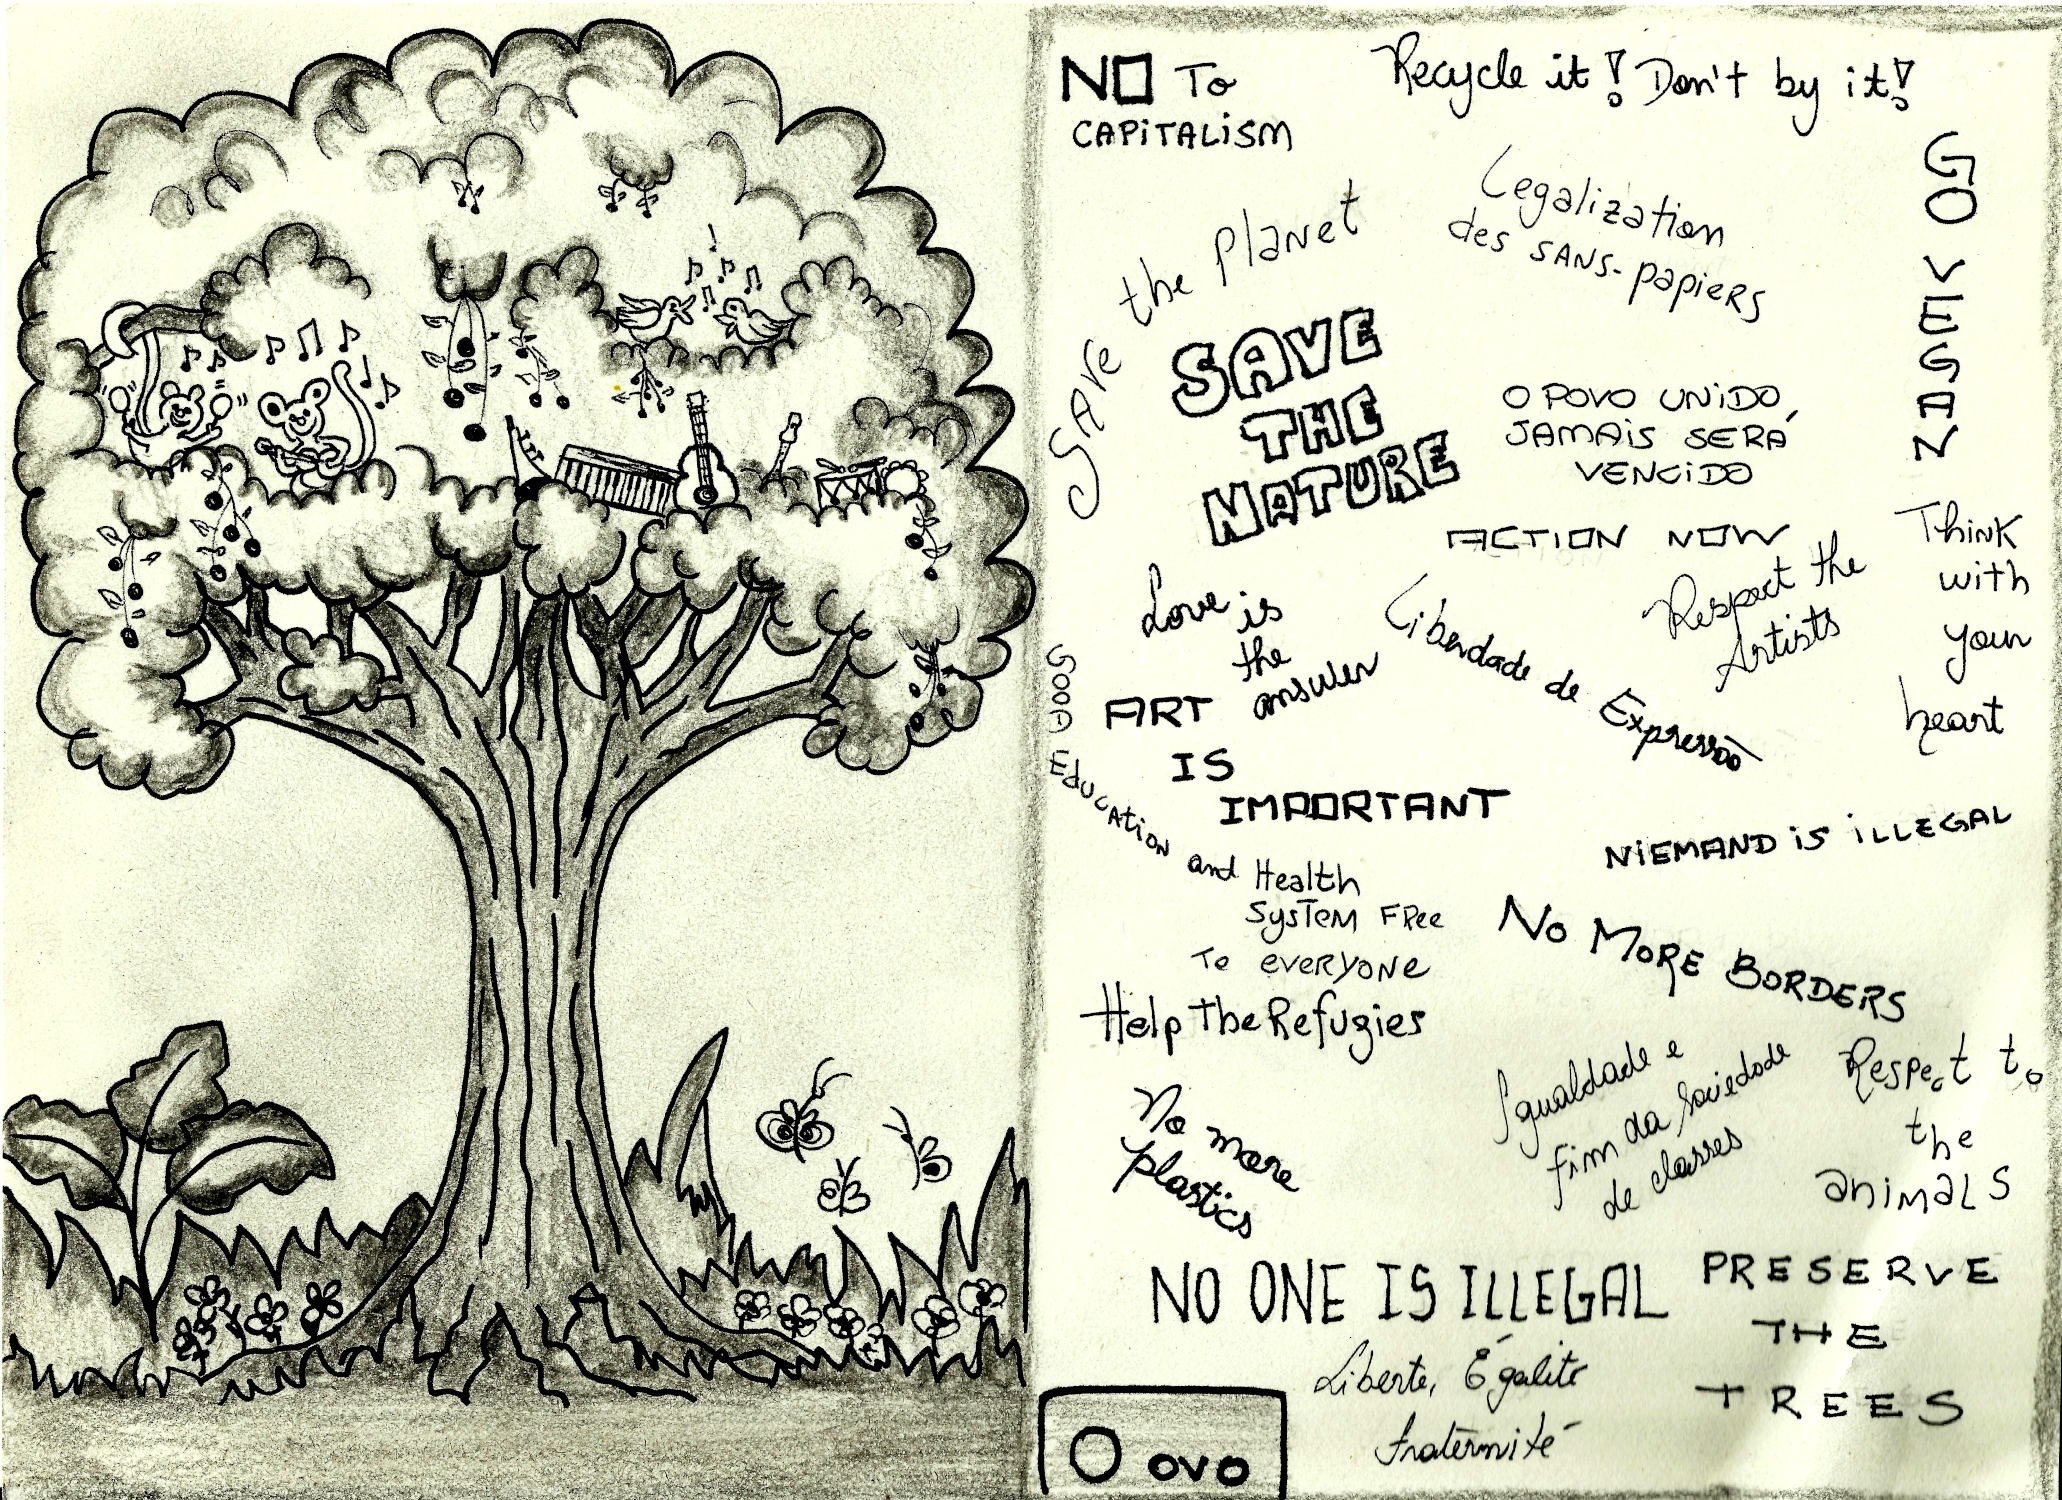 NO To
CAPiTALiSM
Recycle it! Don't by it!
GO VEGAN
Save the Planet
Legalization
des SANS-papiers
SAVE
THE
NATURE
O POVO UNiDO,
JAMAiS SERÁ
VENCiDO
ACTION NOW
Respect the
Artists
Think
with
your
heart
Love is
the
answer
Liberdade de Expressão
ART
IS
IMPORTANT
Good Education and Health
System Free
To everyone
NiEMAND is iLLEGAL
No More Borders
Help The Refugies
Igualdade e
fim da sociedade
de classes
Respect to
the
animals
No more
plastics
NO ONE IS ILLEGAL
PRESERVE
THE
TREES
Liberte, Égalité
fraternité
O ovo